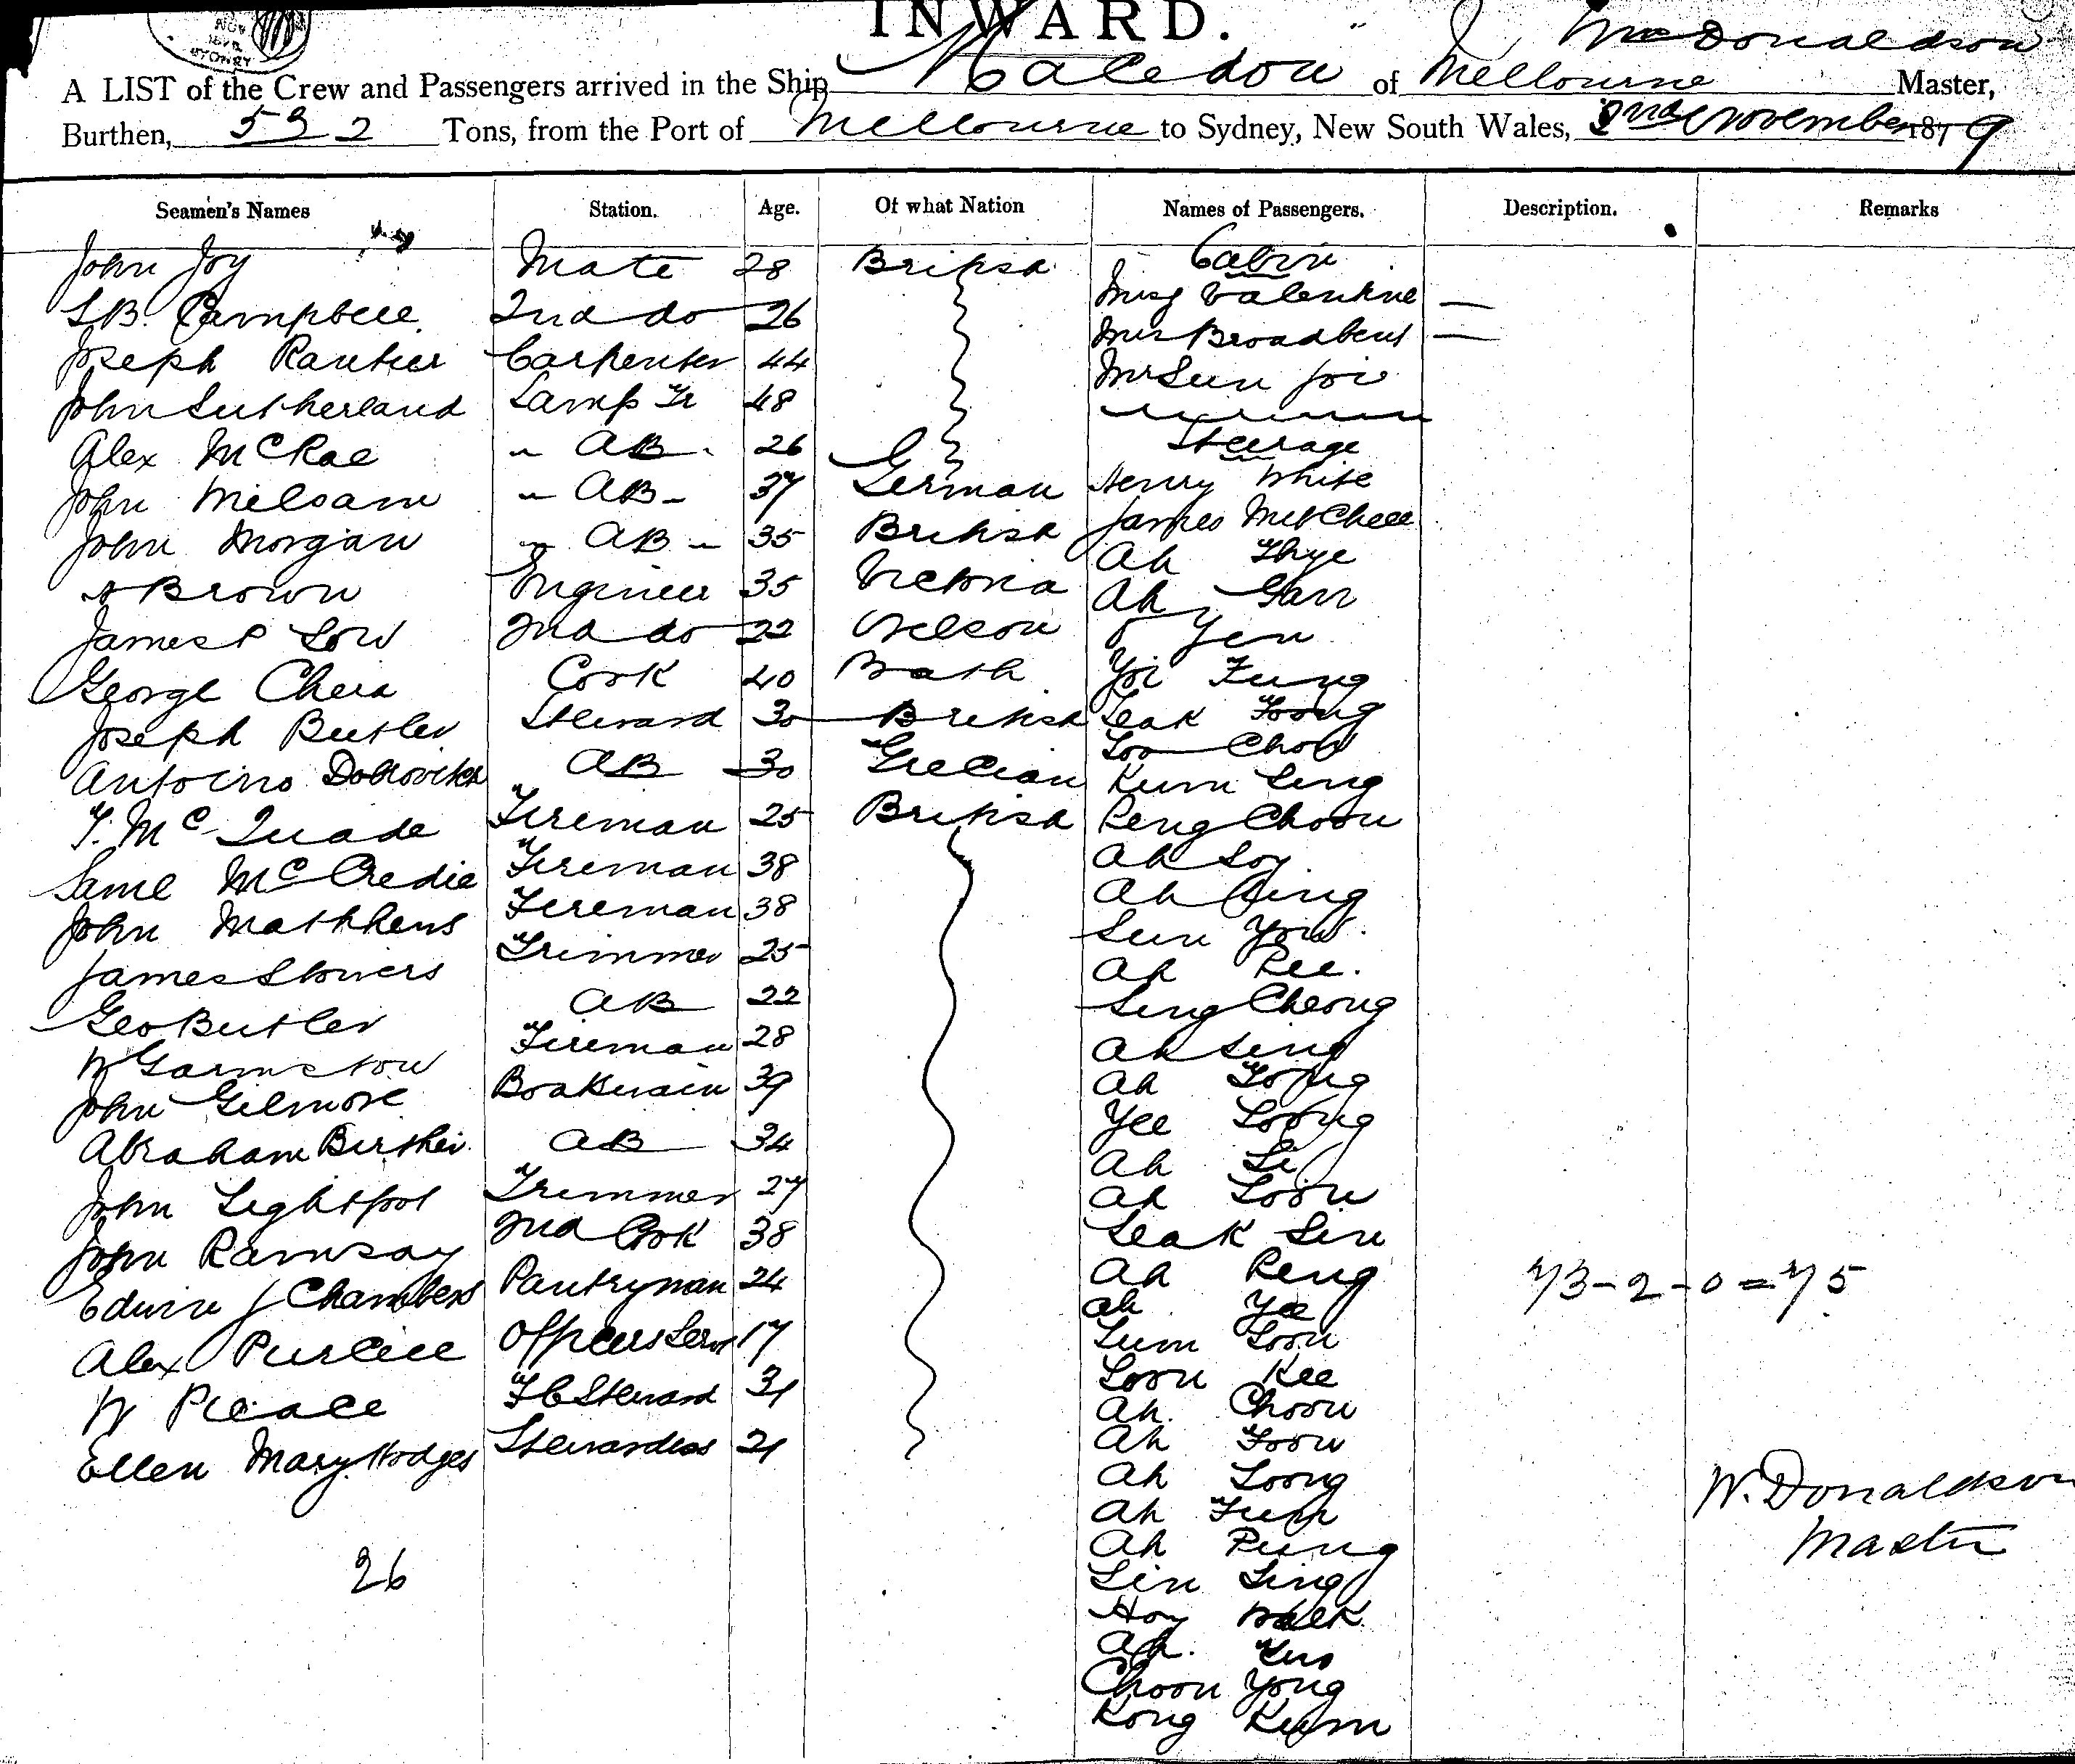 INWARD.
Wm Donaldson
A LIST of the Crew and Passengers arrived in the Ship Macedon of Melbourne Master,
Burthen, 532 Tons, from the Port of Melbourne to Sydney, New South Wales, 2nd November 1879
Seamen's Names Station. Age. Of what Nation Names of Passengers. Description. Remarks
John Joy Mate 28 British Cabin
S B. Campbell 2nd do 26 Miss Valentine —
Joseph Carpenter 44 Mrs Broadbent —
John Sutherland Lamp Tr 48 Mr Sun Joi
Alex McRae " AB 26 Steerage
John " AB 37 German Henry White
John Morgan " AB 35 British James Mitchell
Brown Engineer 35 Victoria Ah Thye
James P Low 2nd do 22 Nelson Ah Gan
George Cook 40 Bath Yen
Joseph Butler Steward 30 British Yoi Fung
AB 30 Grecian Leak Foong
T. McQuade Fireman 25 British Loo Chow
Saml McCredie Fireman 38 Kum Sing
John Matthews Fireman 38 Peng Choon
James Stowers Trimmer 25 Ah Soy
Geo Butler AB 22 Ah Ping
W Garmston Fireman 28 Sun You
John Gilmore Boatswain 39 Ah Pee.
Abraham AB 34 Sing Cheong
John Lightfoot Trimmer 27 Ah Sing
John Ramsay 2nd Cook 38 Ah Fong
Edwin J Chambers Pantryman 24 Yee Loong
Alex Purcell Officers Servt 17 Ah Li
W Pleace F C Steward 31 Ah Loon
Ellen Mary Hodges Stewardess 21 Leak Sin
26
Ah Peng
73 - 2 - 0 = 75
Ah Yee
Lum Loon
Loon Kee
Ah Choon
Ah Foon
Ah Loong
W. Donaldson
Ah Fum
Master
Ah Pung
Sin Sing
Hoy
Ah.
Choon Yong
Kong Kum